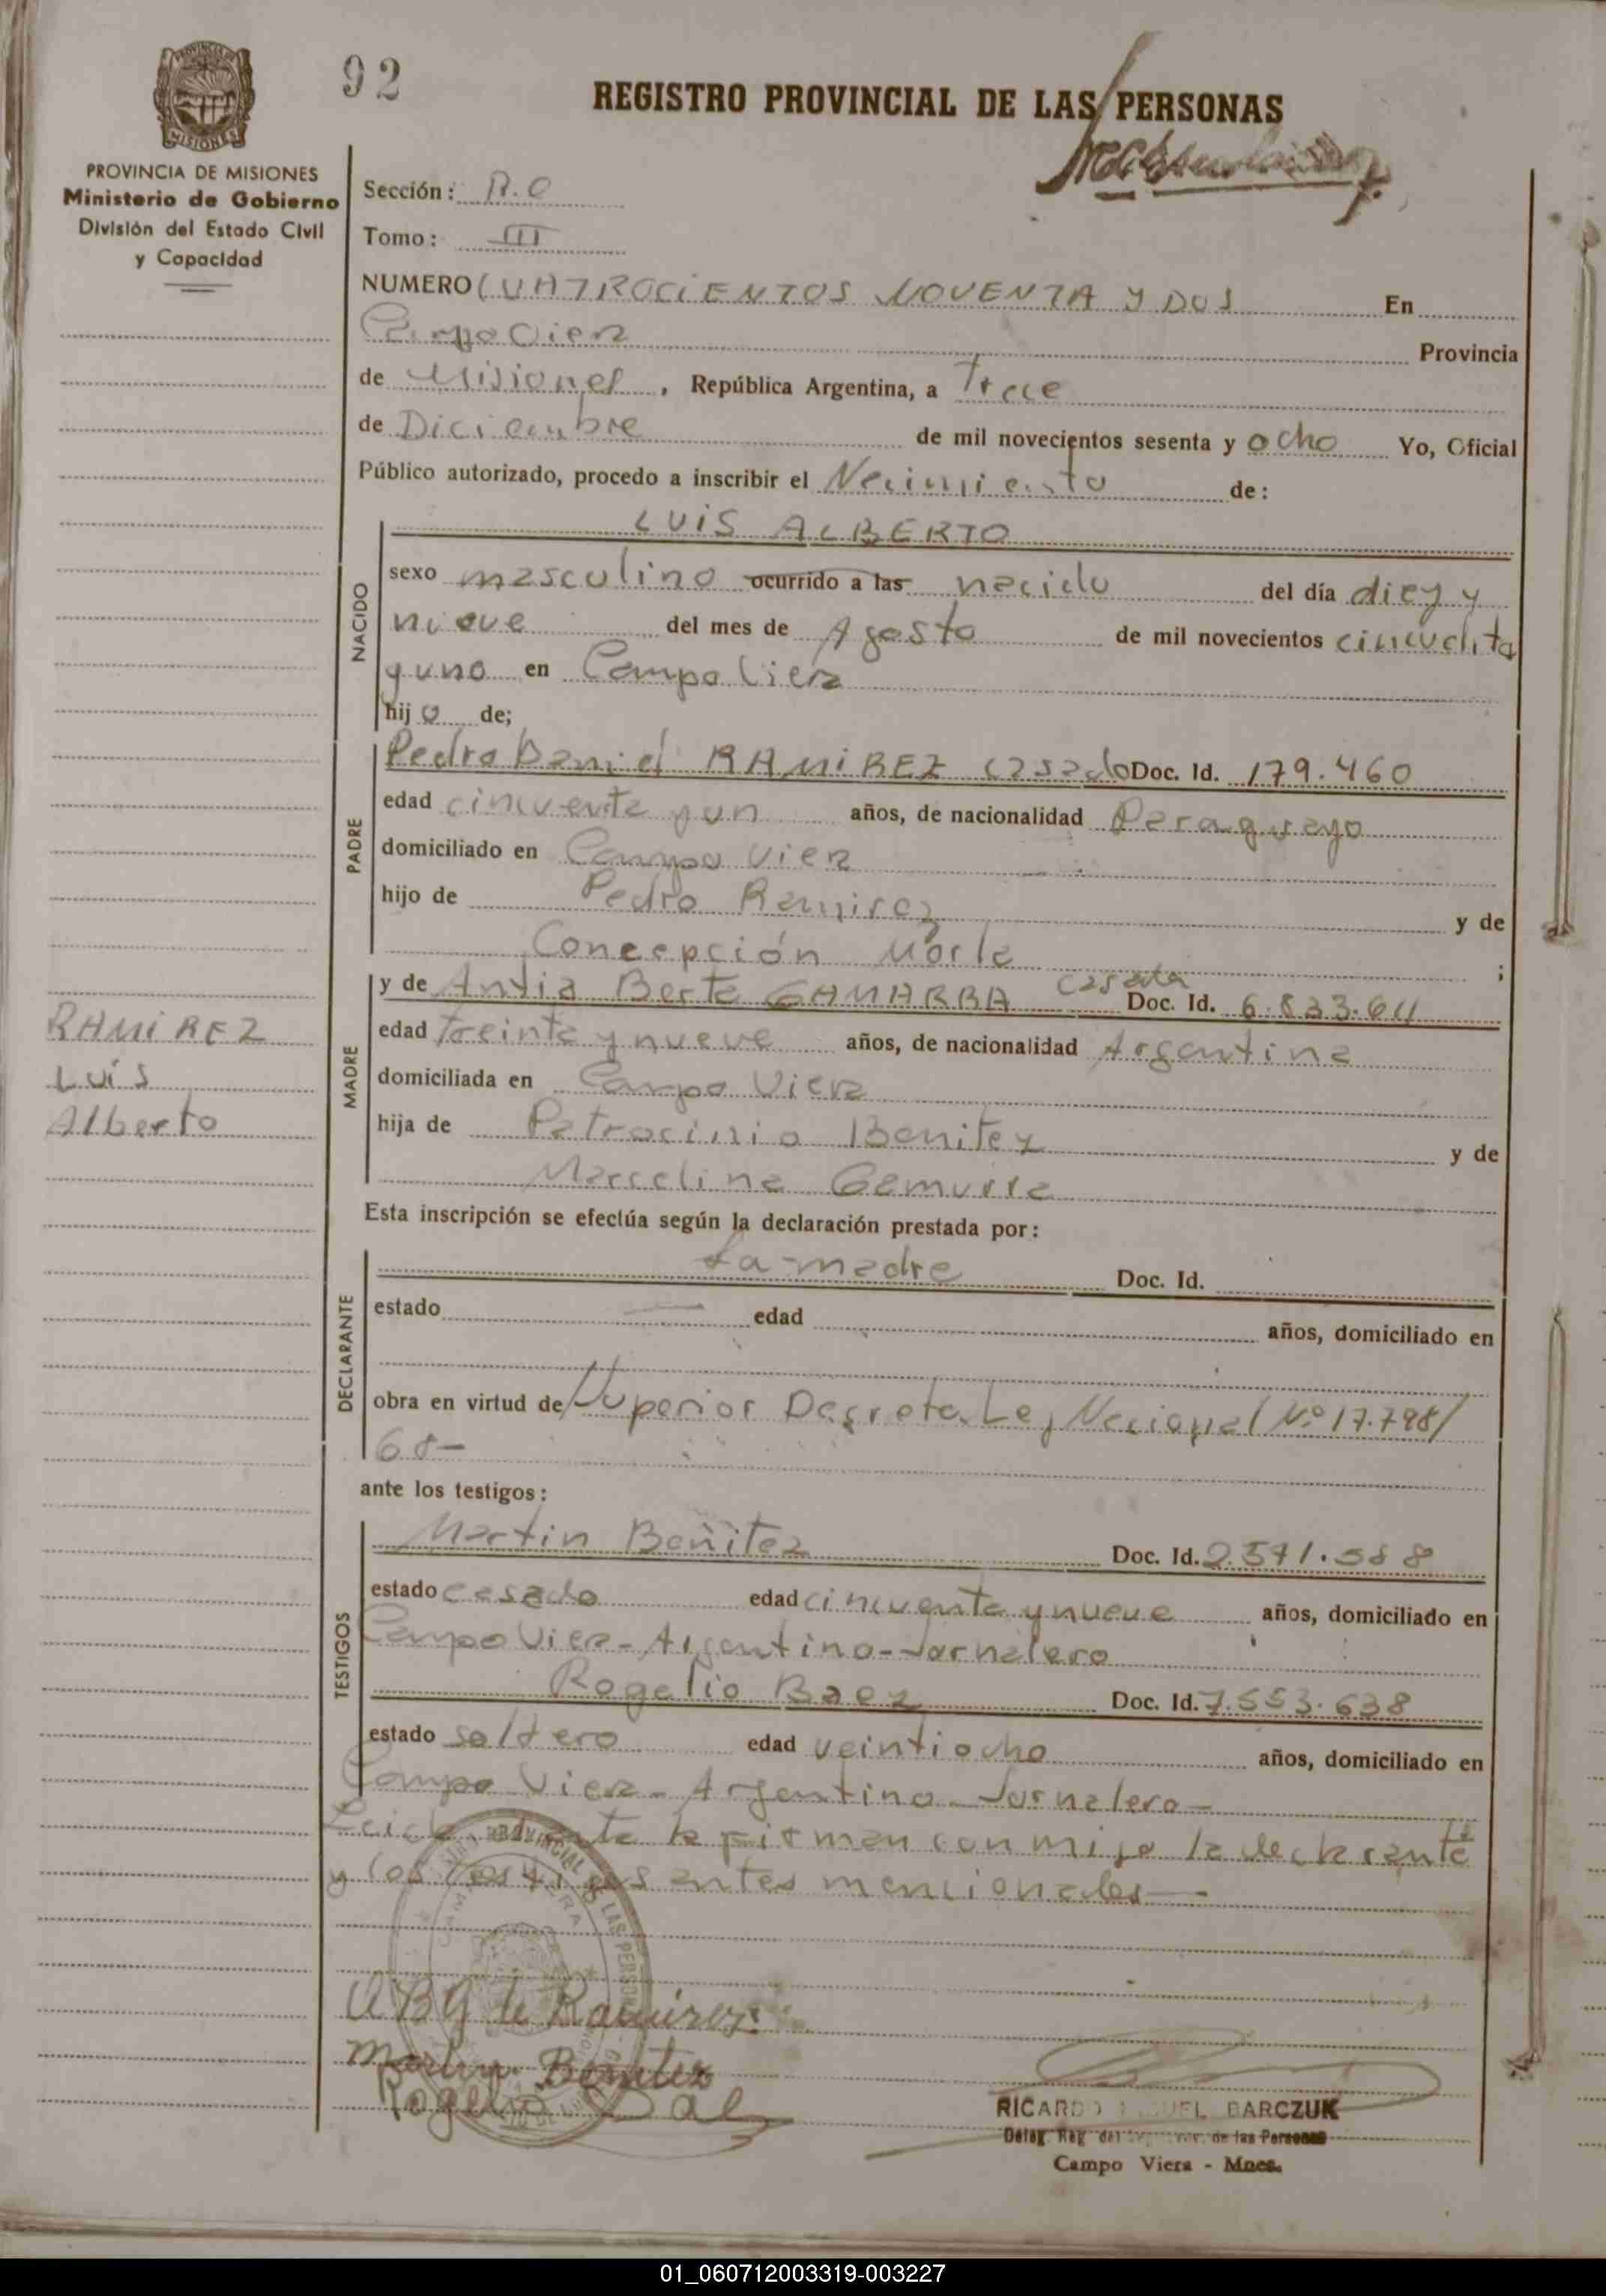 92
REGISTRO PROVINCIAL DE LAS PERSONAS
PROVINCIA DE MISIONES
Ministerio de Gobierno
División del Estado Civil
y Capacidad
Sección: R.O
Tomo: III
NUMERO CUATROCIENTOS NOVENTA Y DOS En
Campo Viera Provincia
de Misiones, República Argentina, a Trece
de Diciembre de mil novecientos sesenta y ocho Yo, Oficial
Público autorizado, procedo a inscribir el Nacimiento de:
LUIS ALBERTO
NACIDO
sexo masculino ocurrido a las nacido del día diez y
nueve del mes de Agosto de mil novecientos cincuenta
y uno en Campo Viera
hijo de;
PADRE
Pedro Daniel RAMIREZ casado Doc. Id. 179.460
edad cincuenta y un años, de nacionalidad Paraguayo
domiciliado en Campo Viera
hijo de Pedro Ramirez y de
Concepción ;
MADRE
y de Berta GAMARRA casada Doc. Id.
edad treinta y nueve años, de nacionalidad Argentina
domiciliada en Campo Viera
hija de Patrocinio Benitez y de
Marcelina
RAMIREZ
Luis
Alberto
Esta inscripción se efectúa según la declaración prestada por:
DECLARANTE
La madre Doc. Id.
estado — edad años, domiciliado en
obra en virtud de Superior Decreto Ley Nacional Nº 17.798/
68—
ante los testigos:
TESTIGOS
Martin Benitez Doc. Id. 2.571.588
estado casado edad cincuenta y nueve años, domiciliado en
Campo Viera - Argentino - Jornalero
Rogelio Baez Doc. Id. 7.553.638
estado soltero edad veintiocho años, domiciliado en
Campo Viera - Argentino - Jornalero —
Leida la firman conmigo la declarante
y los testigos antes mencionados —
PROVINCIAL DE LAS PERSONAS
A B G de Ramirez
Martin Benitez
Rogelio
RICARDO MIGUEL BARCZUK
Deleg. Reg. de las Personas
Campo Viera - Mnes.
01_060712003319-003227